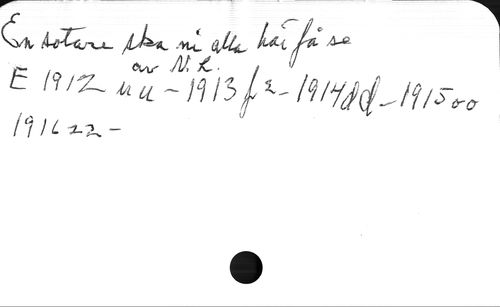 En sotare ska ni alla här få se
av N. L.
E 1912 uu - 1913 fz - 1914 dd - 1915 oo
1916 22 -